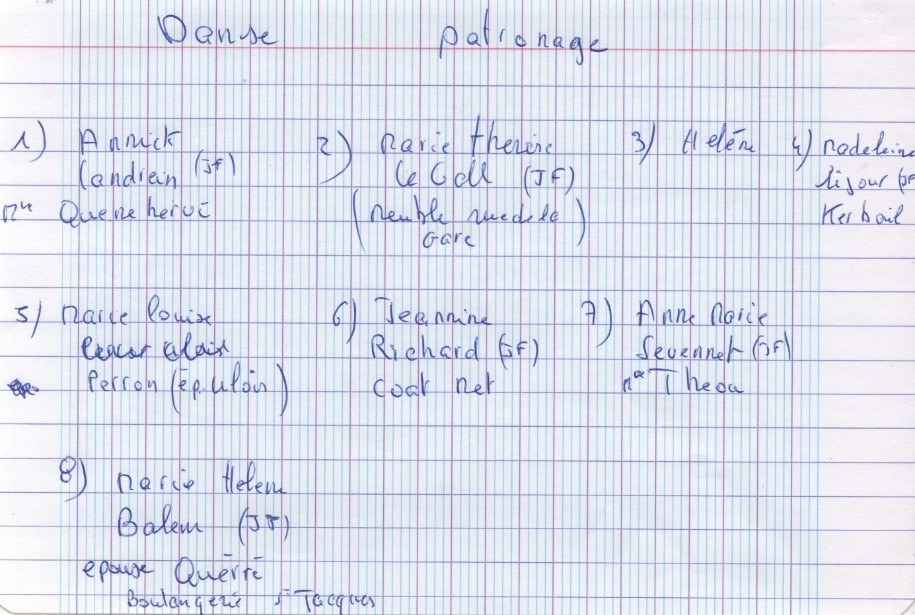 Danse patronage
1) Annick
Candrein (JF)
Mme Quenehervé
2) Marie therèse
Le Gall (JF)
(Meuble rue de la
Gare)
3) Helène
4) Madeleine
lijour (JF
Kerbail
5) Marie louise
Perron (ép. Uloin)
6) Jeannine
Richard (JF)
Coat Net
7) Anne Marie
Sevennet (JF)
Me Theou
8) Marie Helene
Balem (JF)
epouse Querré
Boulangerie St Jacques